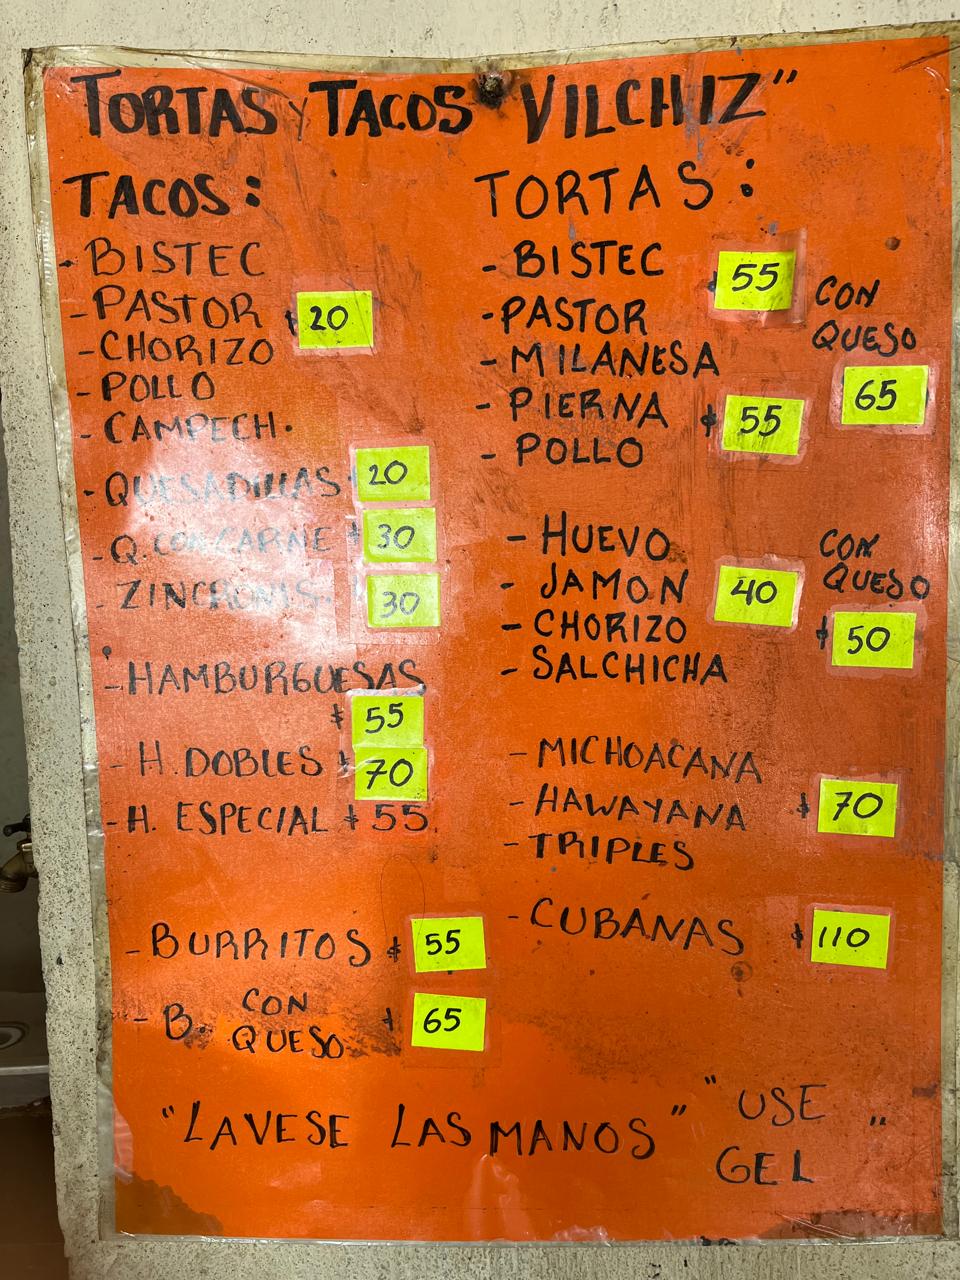 TORTAS Y TACOS "VILCHIZ"
TACOS:
- BISTEC
- PASTOR $20
- CHORIZO
- POLLO
- CAMPECH.
- QUESADILLAS $20
- Q. CON CARNE $30
- ZINCRONIS. $30
- HAMBURGUESAS
$55
- H. DOBLES $70
- H. ESPECIAL $55
- BURRITOS $55
- B. CON
QUESO $65
TORTAS:
- BISTEC $55
- PASTOR
- MILANESA
- PIERNA $55
- POLLO
CON
QUESO
65
- HUEVO
- JAMON 40
- CHORIZO
- SALCHICHA
CON
QUESO
$50
- MICHOACANA
- HAWAYANA $70
- TRIPLES
- CUBANAS $110
"LAVESE LAS MANOS"
"USE
GEL"